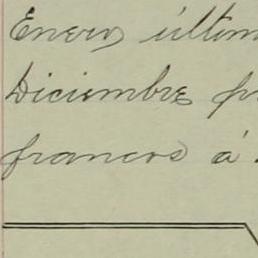 Enero últim
Diciembre p
francos á